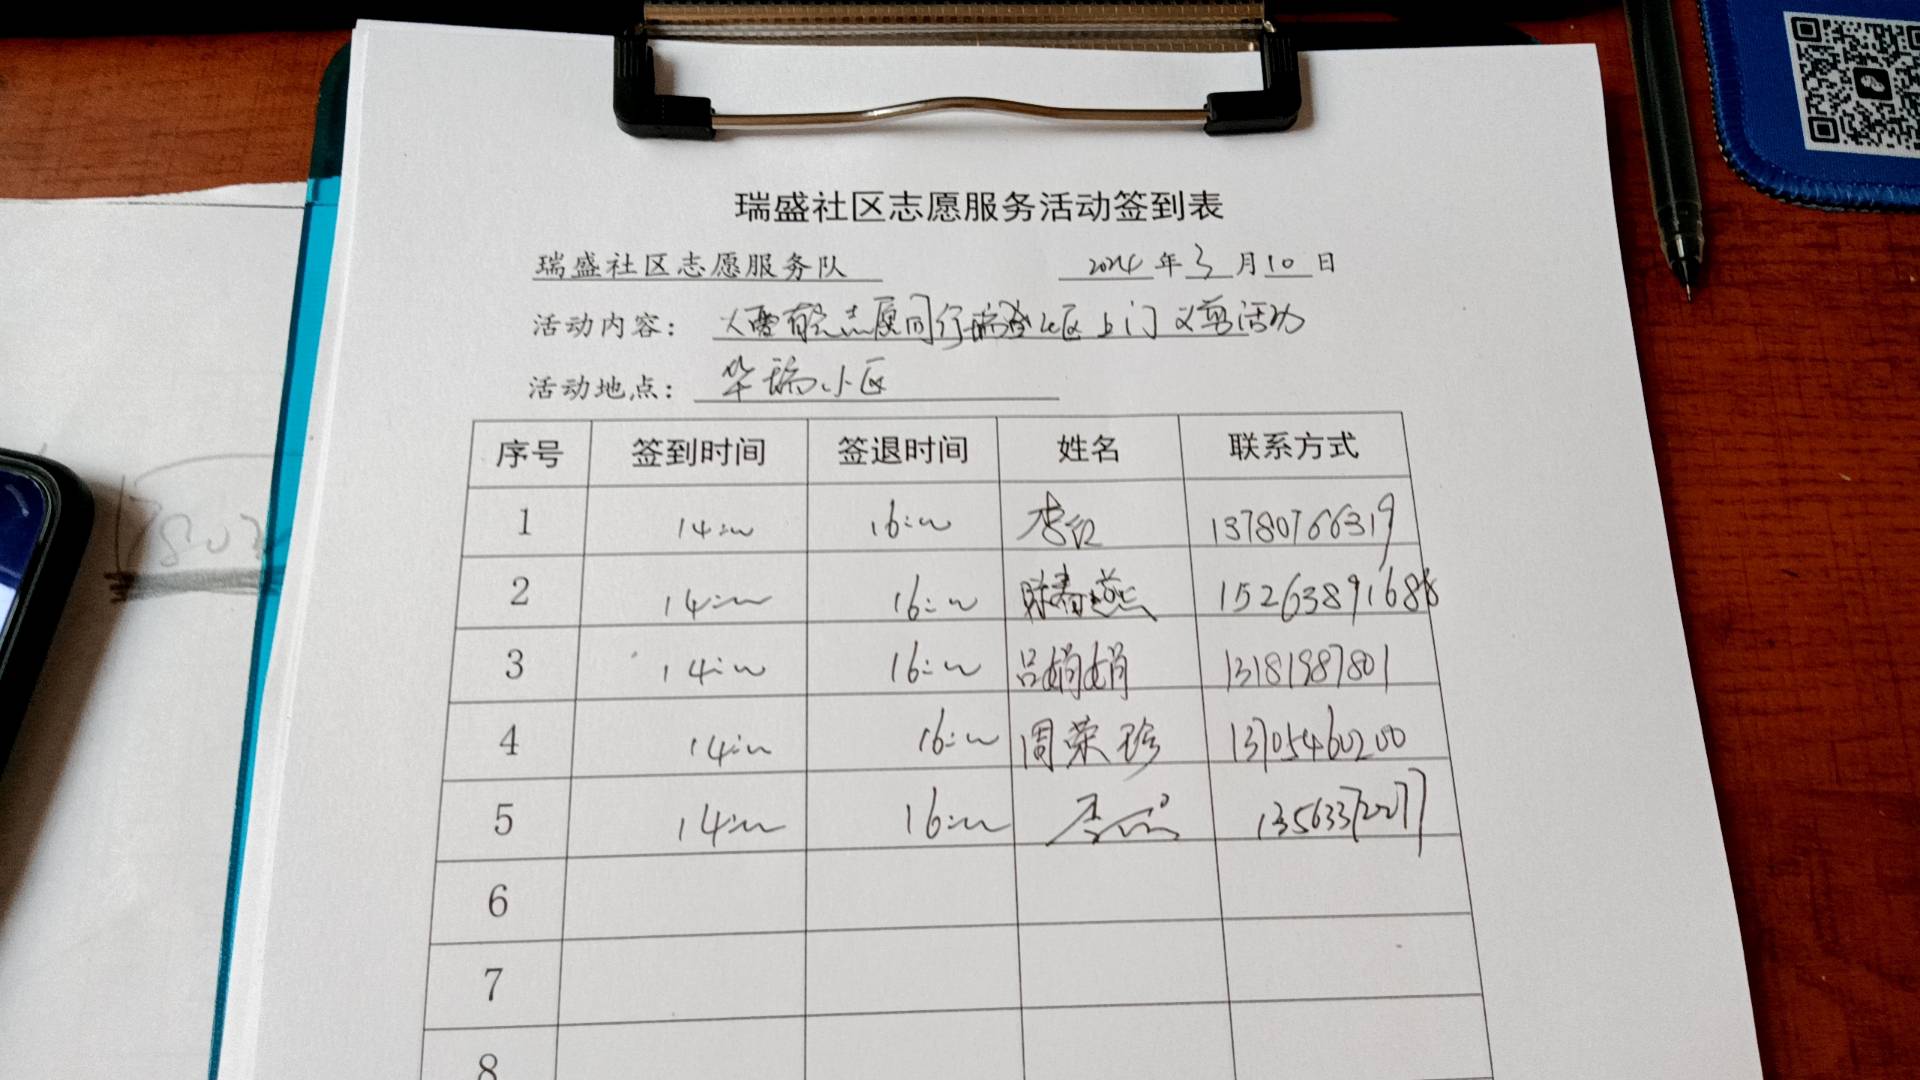 瑞盛社区志愿服务活动签到表
瑞盛社区志愿服务队 2024年3月10日
活动内容： 志愿同行瑞盛社区上门义剪活动
活动地点： 华瑞小区
序号 签到时间 签退时间 姓名 联系方式
1 14:00 16:00 李红 13780766319
2 14:00 16:00 春燕 15263891688
3 14:00 16:00 吕娟娟 13181987801
4 14:00 16:00 周荣珍 13705460200
5 14:00 16:00 李 13563372277
6
7
8